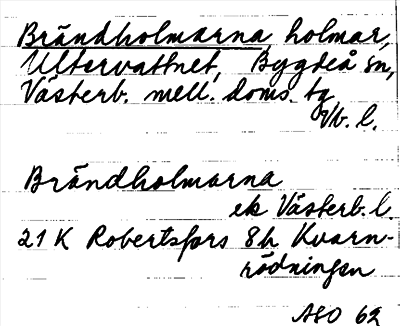 Brändholmarna holmar,
Ultervattnet, Bygdeå sn,
Västerb. mell. doms. tg
Vb. l.
Brändholmarna
ek Västerb. l
21 K Robertsfors 8h Kvarn-
rödningen
ASO 62